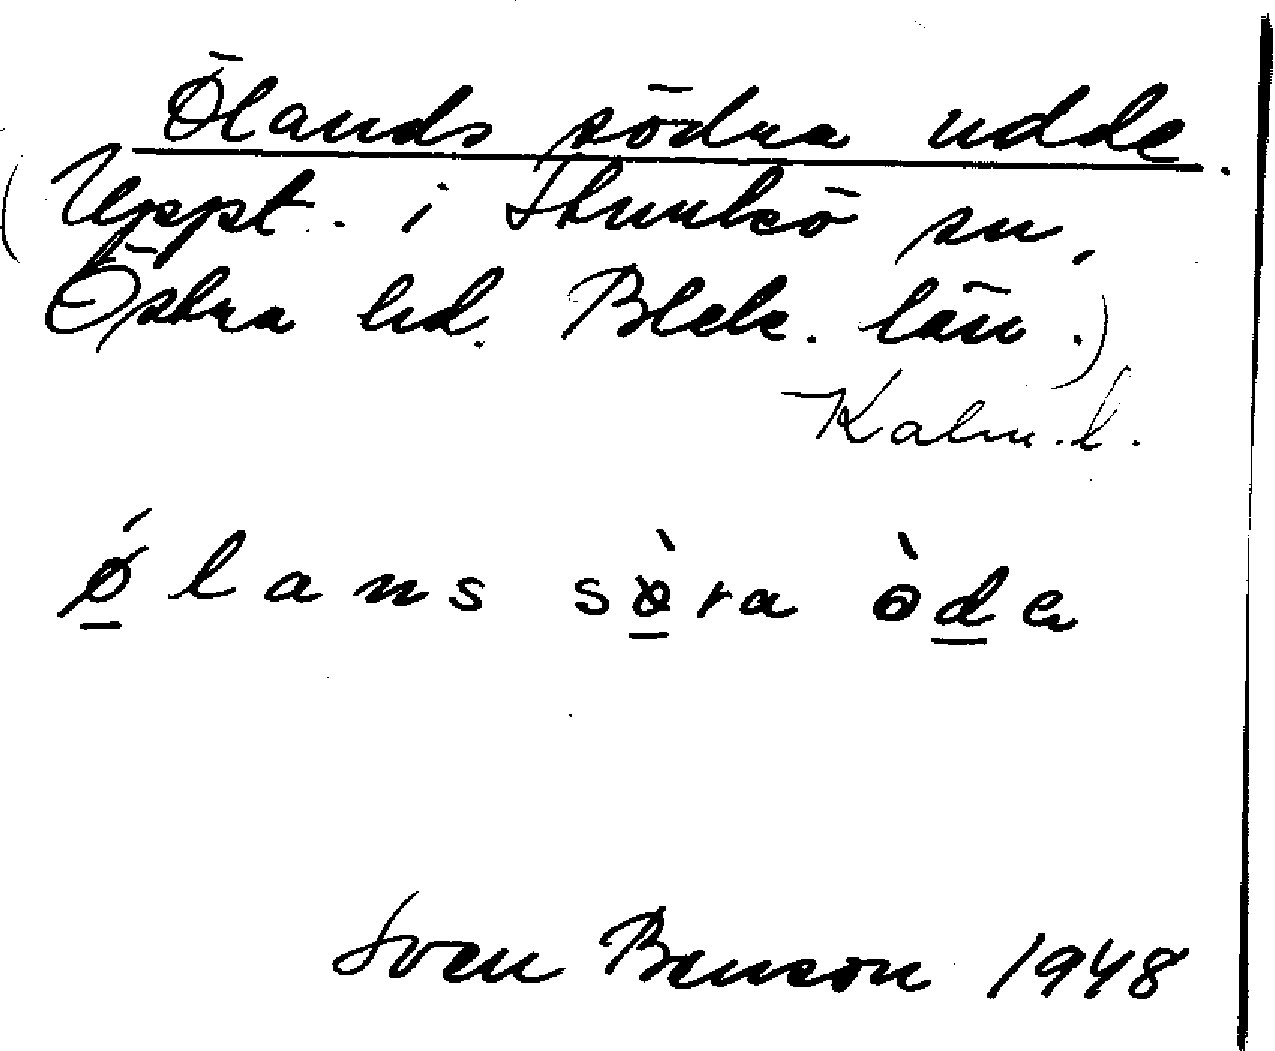 Ölands södra udde.
(Uppt. i Sturkö sn,
Östra hd. Blek. län.)
Kalm. l.
ǿlans sø̀ra òdə
Sven Benson 1948